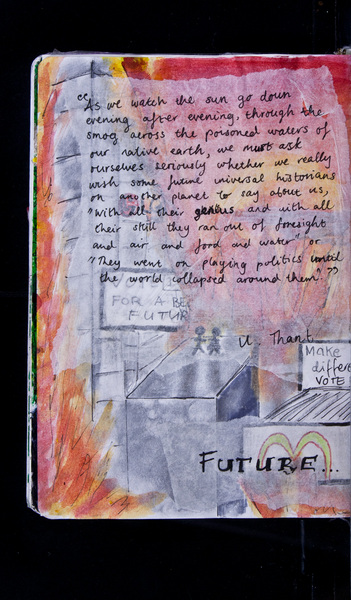 "As we watch the sun go down
evening after evening, through the
smog across the poisoned waters of
our native earth, we must ask
ourselves seriously whether we really
wish some future universal historians
on another planet to say about us,
"With all their genius and with all
their skill they ran out of foresight
and air and food and water" or
"They went on playing politics until
the world collapsed around them"."
FOR A BE
FUTUR
U. Thant
Make
differe
VOTE
FUTURE...